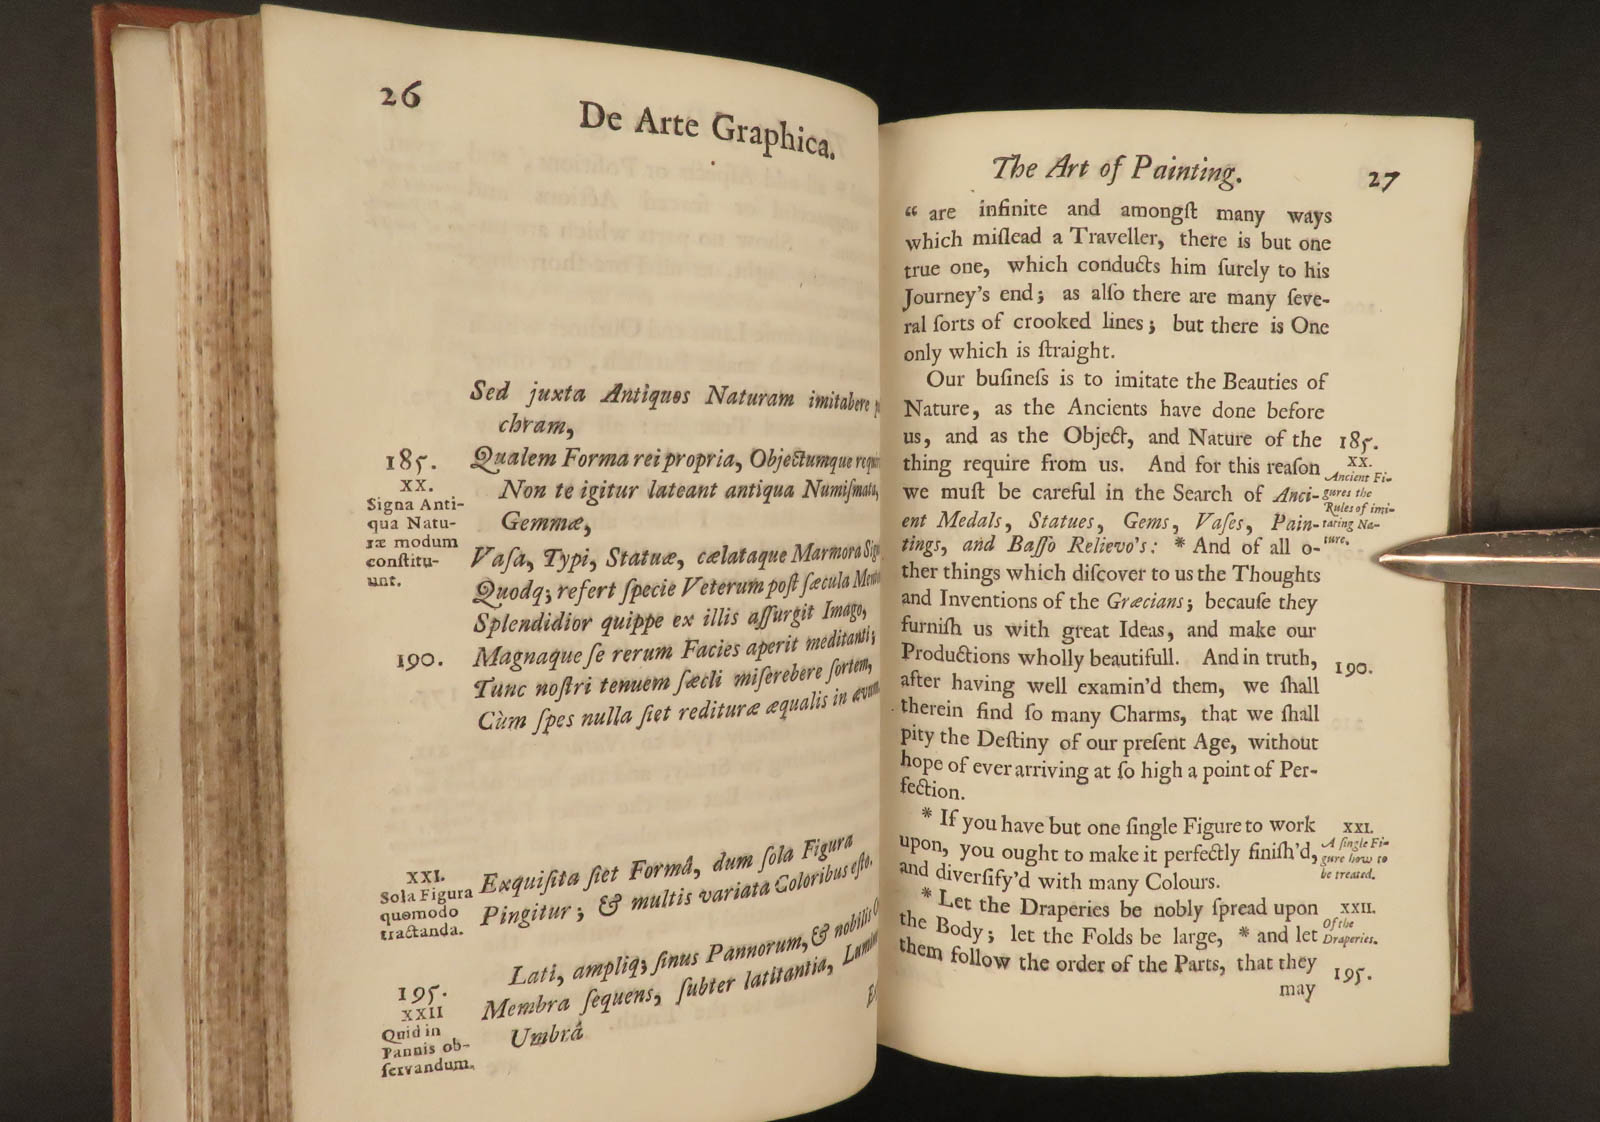 26
De Arte Graphica.
Sed juxta Antiquos Naturam imitabere
chram,
185.
Qualem Forma rei propria, Objectumque
XX.
Signa Anti-
qua Natu-
ræ modum
conſtitu-
unt.
Non te igitur lateant antiqua Numiſmata,
Gemmæ,
Vaſa, Typi, Statuæ, cælataque Marmora
Quodq; refert ſpecie Veterum poſt ſæcula
Splendidior quippe ex illis aſſurgit Imago,
190.
Magnaque ſe rerum Facies aperit meditanti;
Tunc noſtri tenuem ſæcli miſerebere ſortem,
Cùm ſpes nulla ſiet redituræ æqualis in ævum.
XXI.
Sola Figura
quomodo
tractanda.
Exquiſita ſiet Formâ, dum ſola Figura
Pingitur; & multis variata Coloribus eſto.
Lati, ampliq; ſinus Pannorum, & nobilis
195.
Membra ſequens, ſubter latitantia,
XXII
Quid in
Pannis ob-
ſervandum.
Umbrâ
The Art of Painting.
27
“ are infinite and amongſt many ways
which miſlead a Traveller, there is but one
true one, which conducts him ſurely to his
Journey's end; as alſo there are many ſeve-
ral ſorts of crooked lines; but there is One
only which is ſtraight.
Our buſineſs is to imitate the Beauties of
Nature, as the Ancients have done before
us, and as the Object, and Nature of the
185.
thing require from us. And for this reaſon
XX.
Ancient Fi-
gures the
Rules of imi-
tating Na-
ture.
we muſt be careful in the Search of Anci-
ent Medals, Statues, Gems, Vaſes, Pain-
tings, and Baſſo Relievo's: * And of all o-
ther things which diſcover to us the Thoughts
and Inventions of the Græcians; becauſe they
furniſh us with great Ideas, and make our
Productions wholly beautifull. And in truth,
190.
after having well examin'd them, we ſhall
therein find ſo many Charms, that we ſhall
pity the Deſtiny of our preſent Age, without
hope of ever arriving at ſo high a point of Per-
fection.
* If you have but one ſingle Figure to work
XXI.
A ſingle Fi-
gure how to
be treated.
upon, you ought to make it perfectly finiſh'd,
and diverſify'd with many Colours.
* Let the Draperies be nobly ſpread upon
XXII.
Of the
Draperies.
the Body; let the Folds be large, * and let
them follow the order of the Parts, that they
195.
may